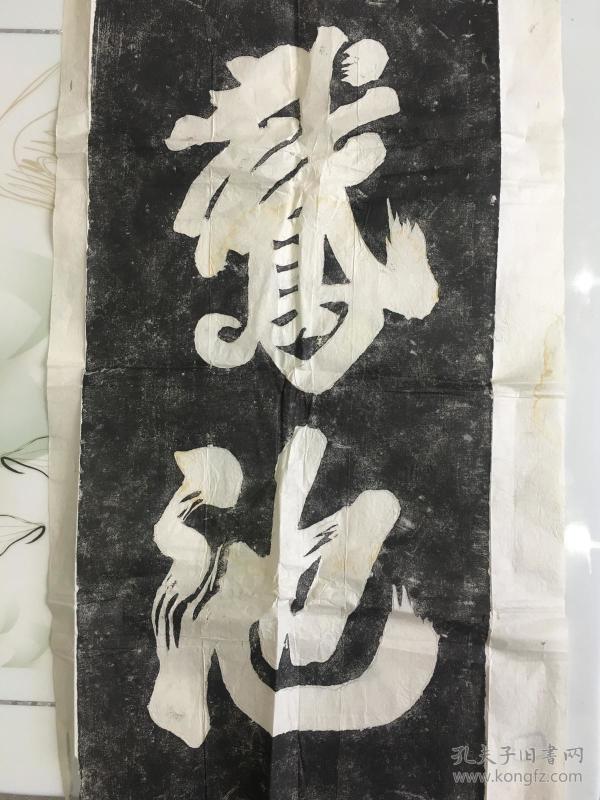 鵞
池
孔夫子旧书网
www.kongfz.com